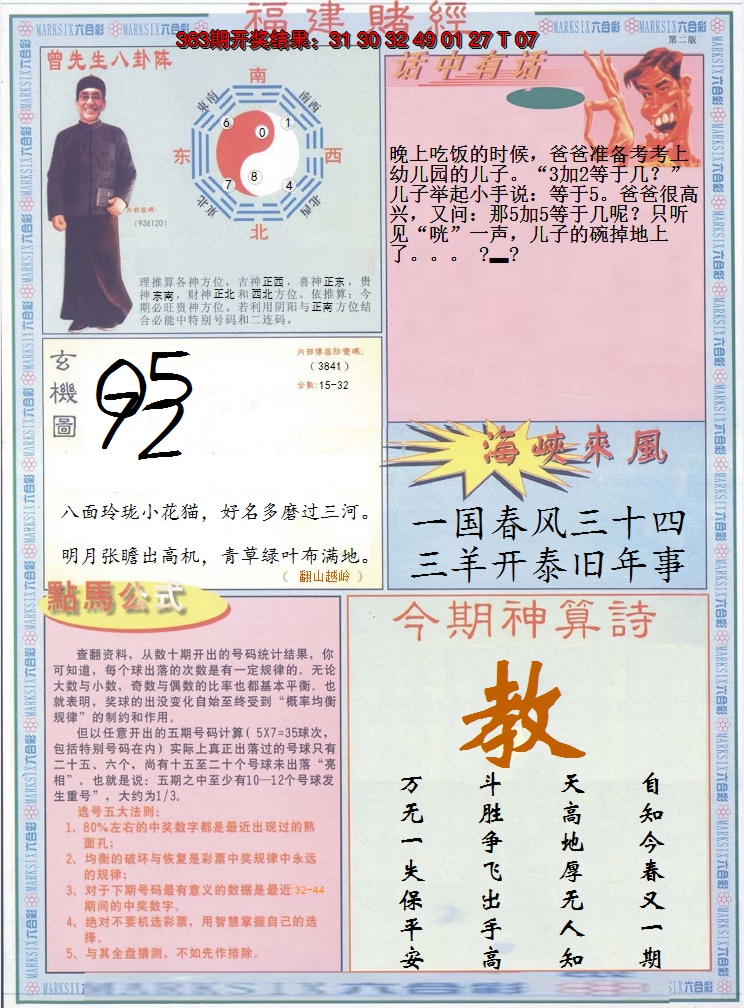 福建賭經
363期开奖结果：31 30 32 49 01 27 T 07
第二版
MARKSIX六合彩
曾先生八卦阵
南
东南
南西
东
西
6
0
1
7
8
4
東北
北西
北
内部密碼：
（936120）
理推算各神方位，吉神正西，喜神正东，贵
神东南，财神正北和西北方位。依推算：今
期必旺贵神方位。若利用阴阳与正南方位结
合必能中特别号码和二连码。
话中有话
晚上吃饭的时候，爸爸准备考考上
幼儿园的儿子。“3加2等于几？”
儿子举起小手说：等于5。爸爸很高
兴，又问：那5加5等于几呢？只听
见“咣”一声，儿子的碗掉地上
了。。。 ?▬?
玄機圖
95
72
（3841）
合数:15-32
八面玲珑小花猫，好名多磨过三河。
明月张瞻出高机，青草绿叶布满地。
（ 翻山越岭 ）
海峡來風
一国春风三十四
三羊开泰旧年事
點馬公式
查翻资料，从数十期开出的号码统计结果，你
可知道，每个球出落的次数是有一定规律的。无论
大数与小数，奇数与偶数的比率也都基本平衡。也
就表明，奖球的出没变化自始至终受到“概率均衡
规律”的制约和作用。
但以任意开出的五期号码计算( 5X7=35球次，
包括特别号码在内) 实际上真正出落过的号球只有
二十五、六个，尚有十五至二十个号球未出落“亮
相”。也就是说：五期之中至少有10—12个号球发
生重号”，大约为1/3。
选号五大法则：
1、80%左右的中奖数字都是最近出现过的熟
面孔；
2、均衡的破坏与恢复是彩票中奖规律中永远
的规律；
3、对于下期号码最有意义的数据是最近32-44
期间的中奖数字。
4、绝对不要机选彩票，用智慧掌握自己的选
择。
5、与其全盘猜测，不如先作排除．
今期神算詩
教
自知今春又一期
天高地厚无人知
斗胜争飞出手高
万无一失保平安